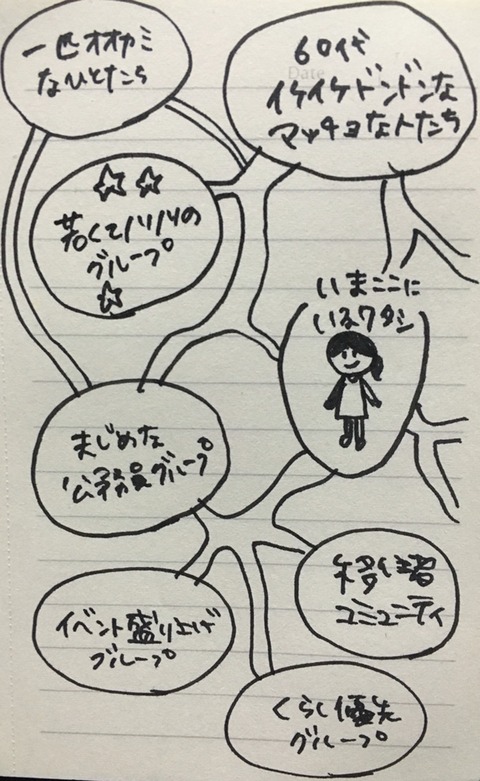 一匹オオカミ
なひとたち
60代
イケイケドンドンな
マッチョな人たち
Date
若くてノリノリの
グループ
いまここに
いるワタシ
まじめな
公務員グループ
移住者
コミュニティ
イベント盛り上げ
グループ
くらし優先
グループ